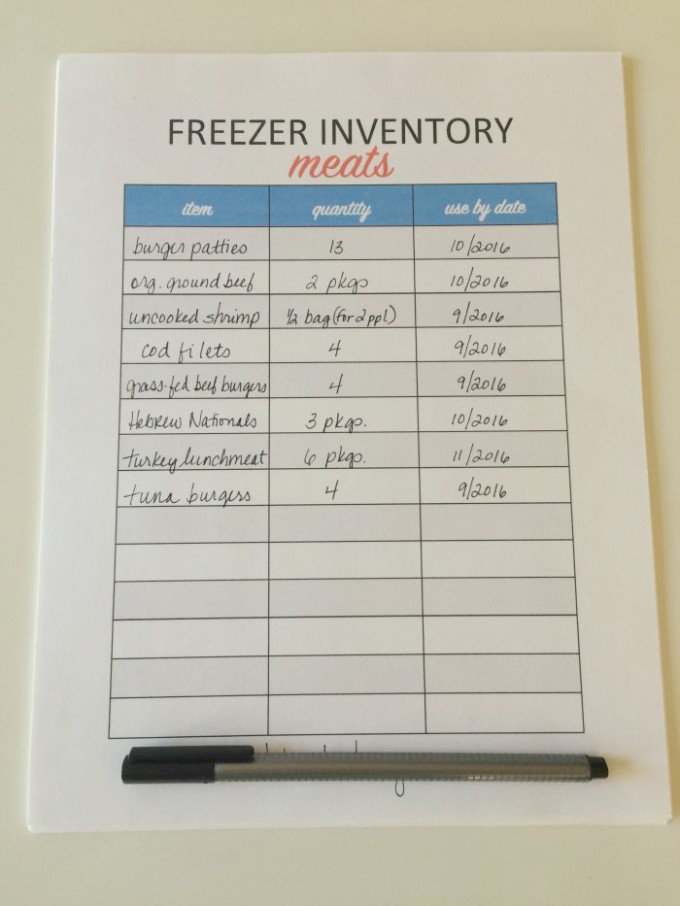 FREEZER INVENTORY
meats
item quantity use by date
burger patties 13 10/2016
org. ground beef 2 pkgs 10/2016
uncooked shrimp 1/2 bag (for 2 ppl) 9/2016
cod filets 4 9/2016
grass-fed beef burgers 4 9/2016
Hebrew Nationals 3 pkgs. 10/2016
turkey lunchmeat 6 pkgs. 11/2016
tuna burgers 4 9/2016